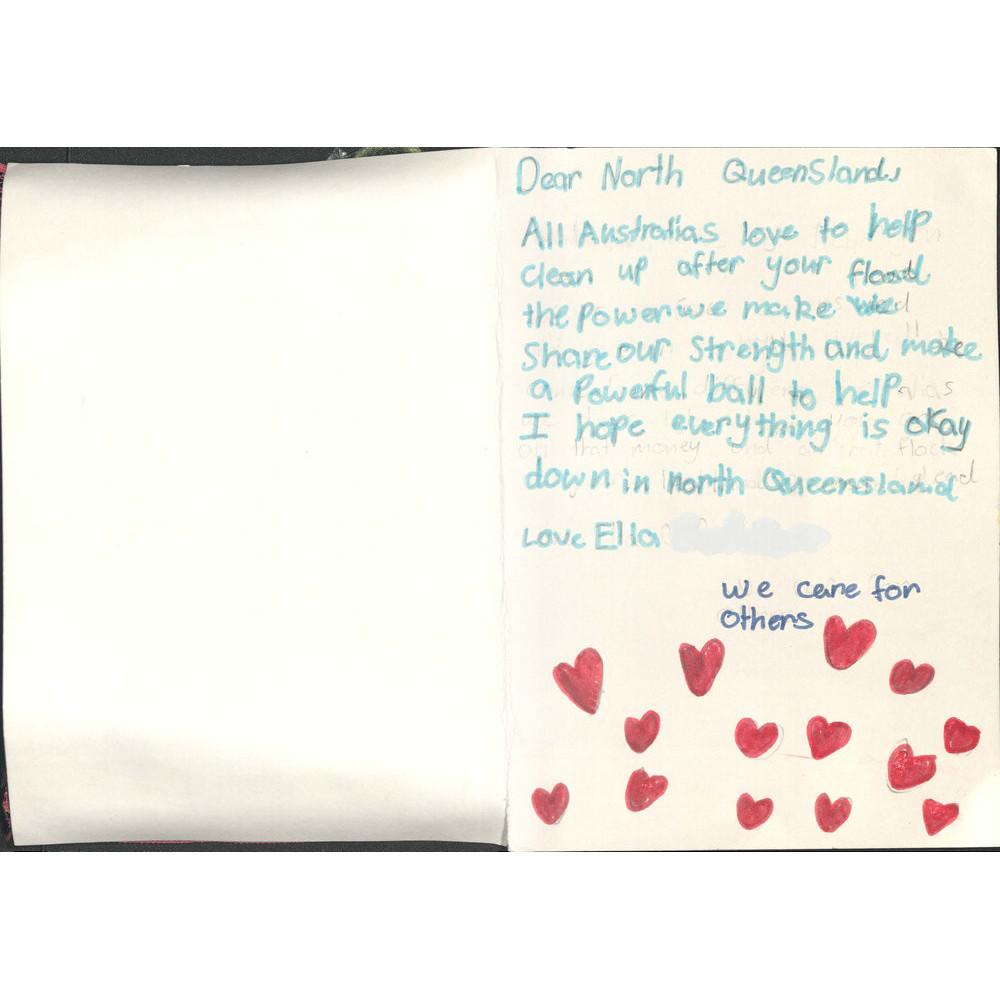 Dear North Queensland,
All Australias love to help
clean up after your flood
the power we make we
share our strength and make
a powerful ball to help.
I hope everything is okay
down in north Queensland
Love Ella
we care for
others